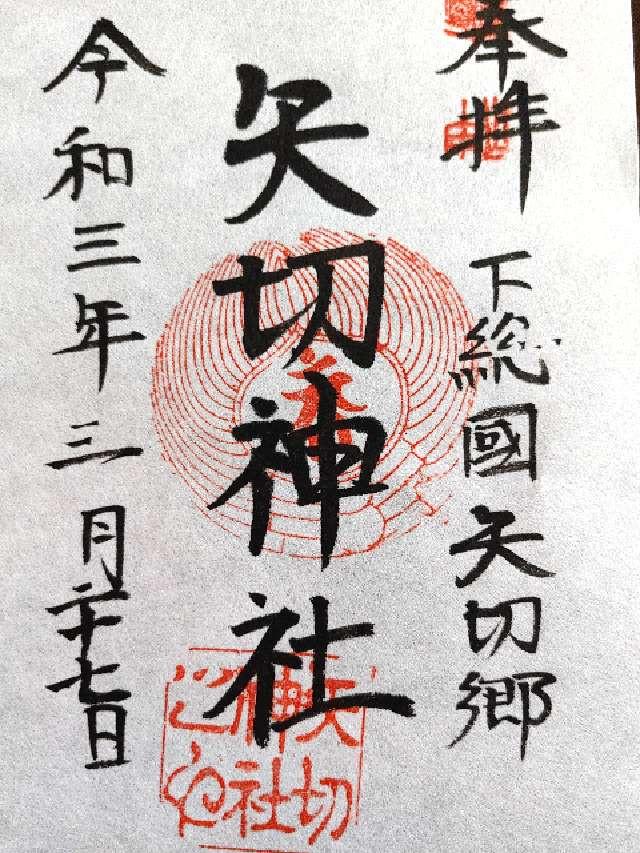 奉拝
下總國矢切郷
矢切神社
令和三年三月二十七日
矢切
神社